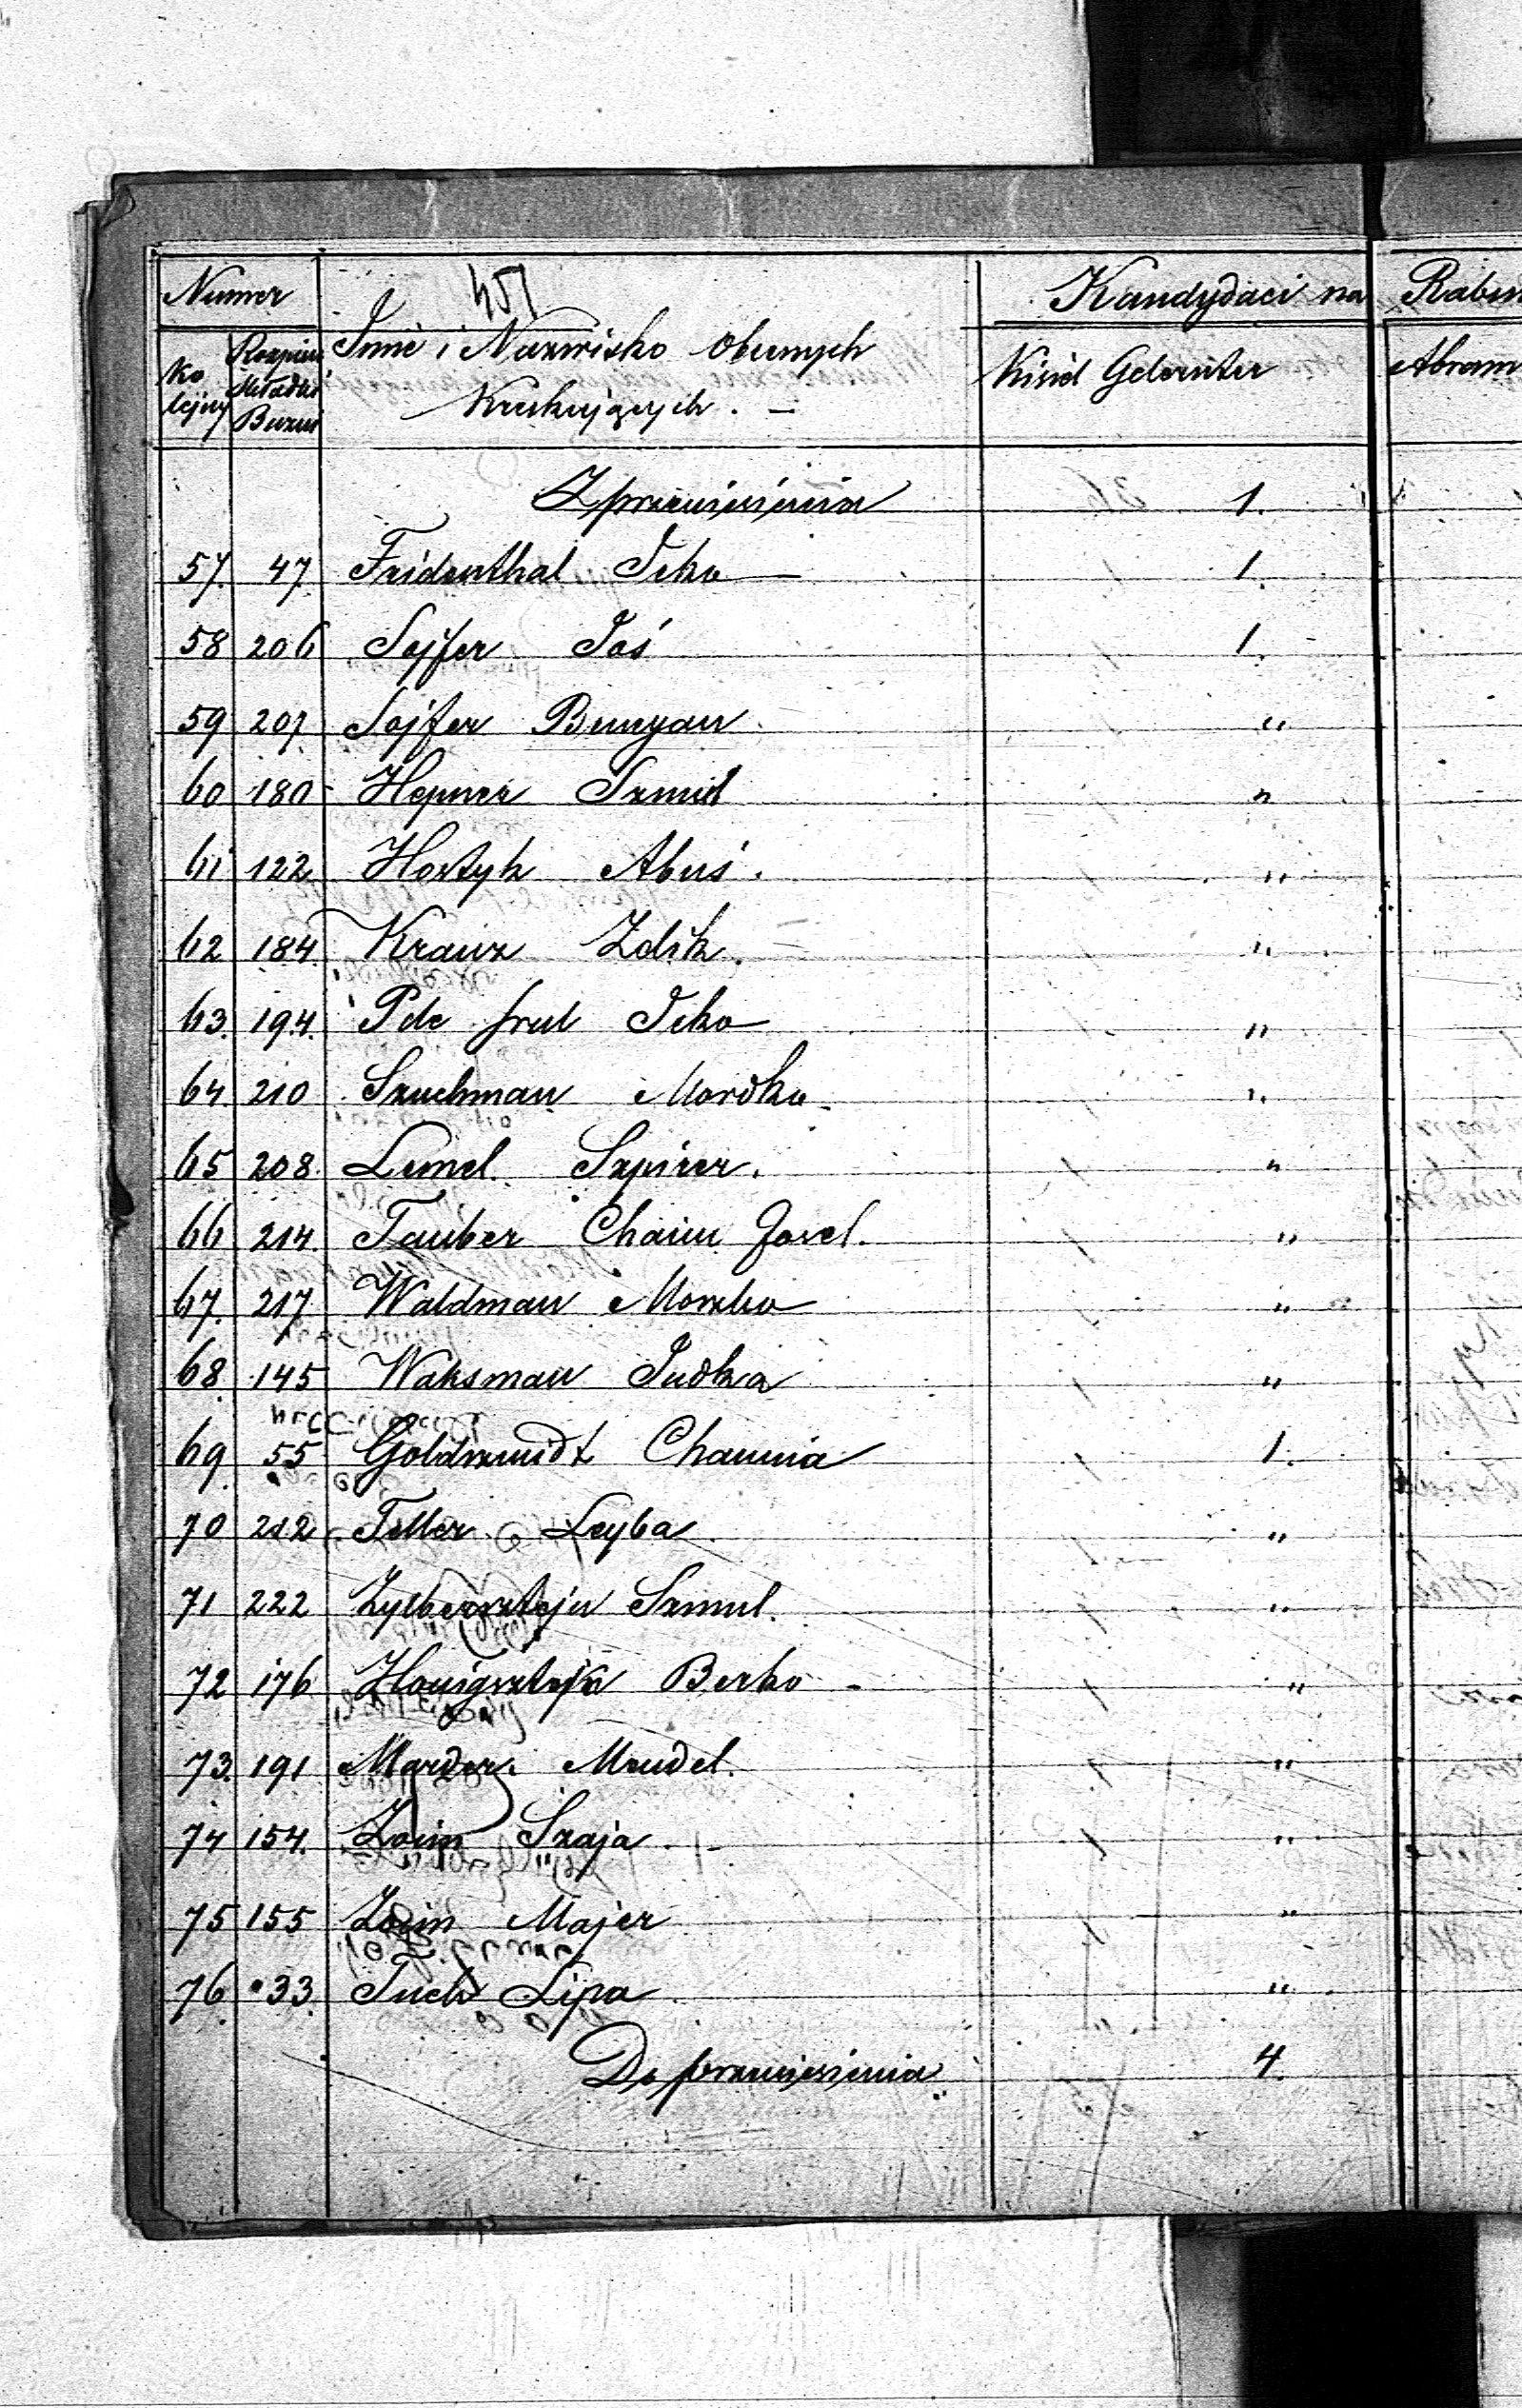 Numer
451
Kandydaci na Rabin
Ko lejny
Rozpisu Składki Buzni
Imie i Nazwisko Obecnych
Kreskujących. —
Kisiel Gelernter
Abram
Z przeniesienia 1.
57. 47 Fridenthal Icko — 1.
58 206 Sejfer Joś 1.
59 207. Sejfer Bunyan "
60 180 Hepner Szmul "
61 122 Hertyk Abuś. "
62 184 Kranz Zelik. "
63. 194. Icko "
64. 210 Szuchman Mordka "
65 208. Lemel Szpirer. "
66 214. Tauber Chaim Josel. "
67. 217 Waldman Moszko "
68. 145 Waksman Judka "
69. 55 Goldszmidt Chaunia 1.
70 212 Teller Leyba "
71 222 Zylbersztejn Szmul. "
72 176 Honigsztejn Berko "
73. 191 Marder Mendel. "
74 154. Zoin Szaja "
75 155 Zoin Majer "
76. 33. Tuch Lipa "
Do przeniesienia 4.